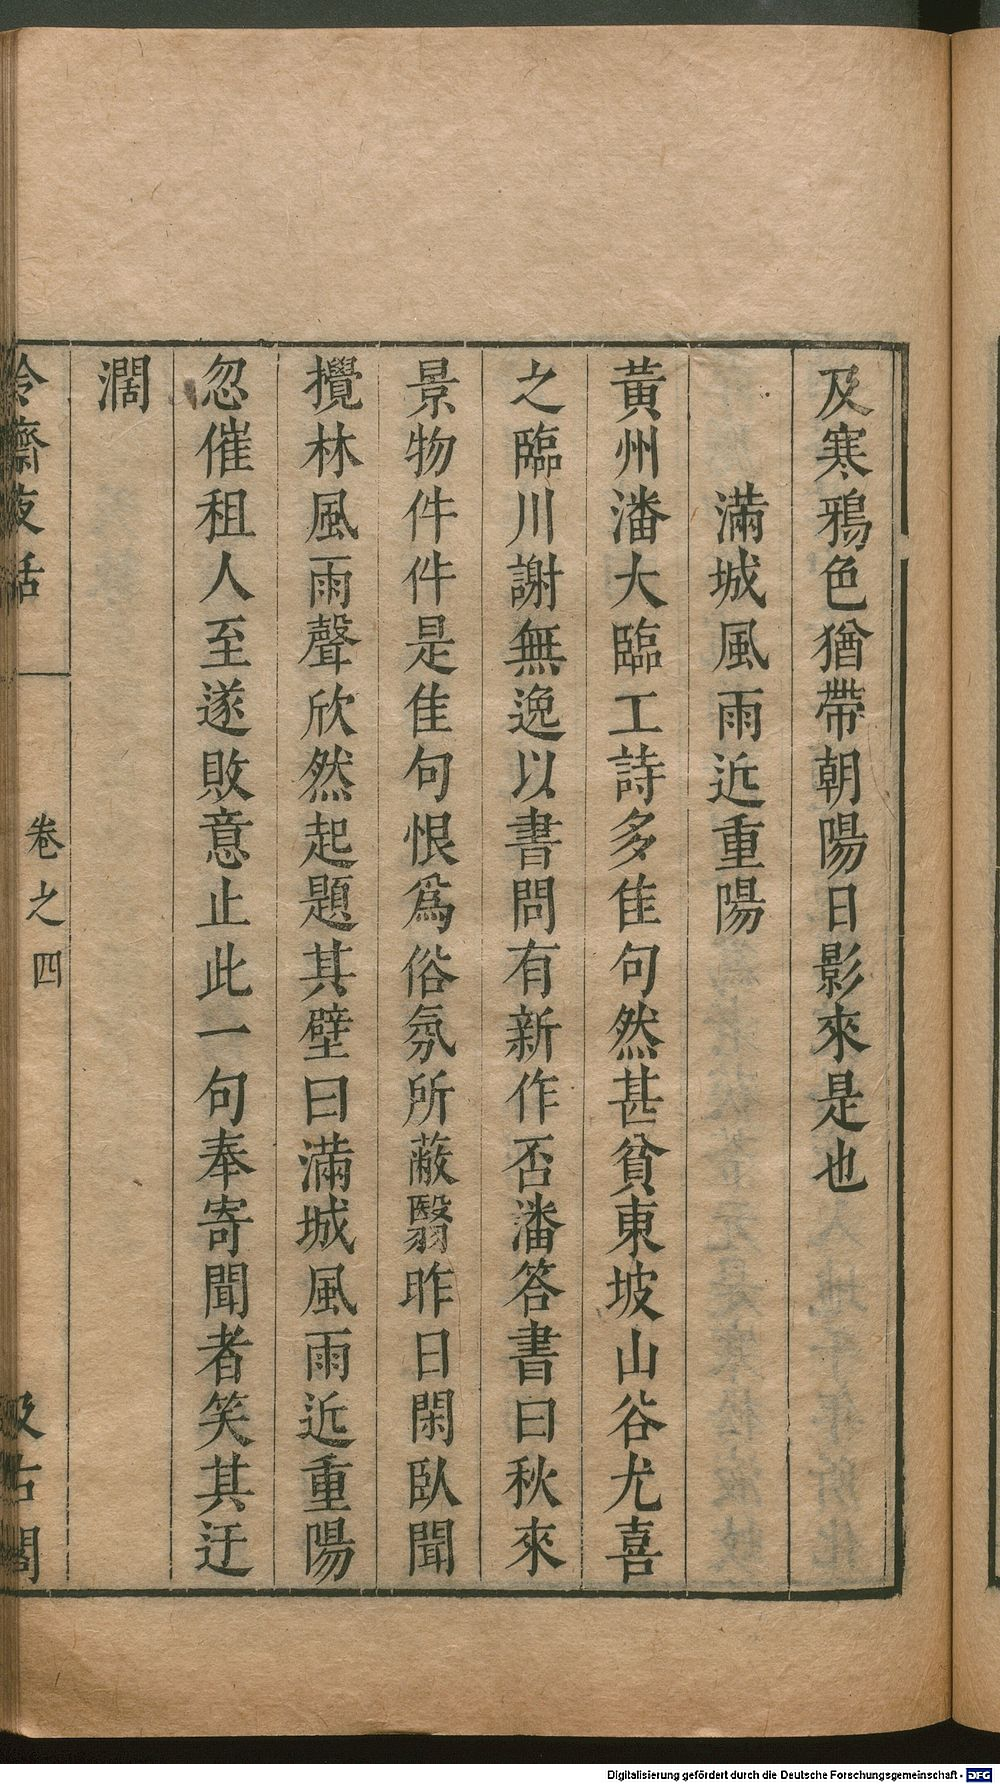 及寒鴉色猶帶朝陽日影來是也
滿城風雨近重陽
黃州潘大臨工詩多佳句然甚貧東坡山谷尤喜
之臨川謝無逸以書問有新作否潘答書曰秋來
景物件件是佳句恨爲俗氛所蔽翳昨日閑臥聞
攪林風雨聲欣然起題其壁曰滿城風雨近重陽
忽催租人至遂敗意止此一句奉寄聞者笑其迂
濶
冷齋夜話
卷之四
汲古閣
Digitalisierung gefördert durch die Deutsche Forschungsgemeinschaft - DFG